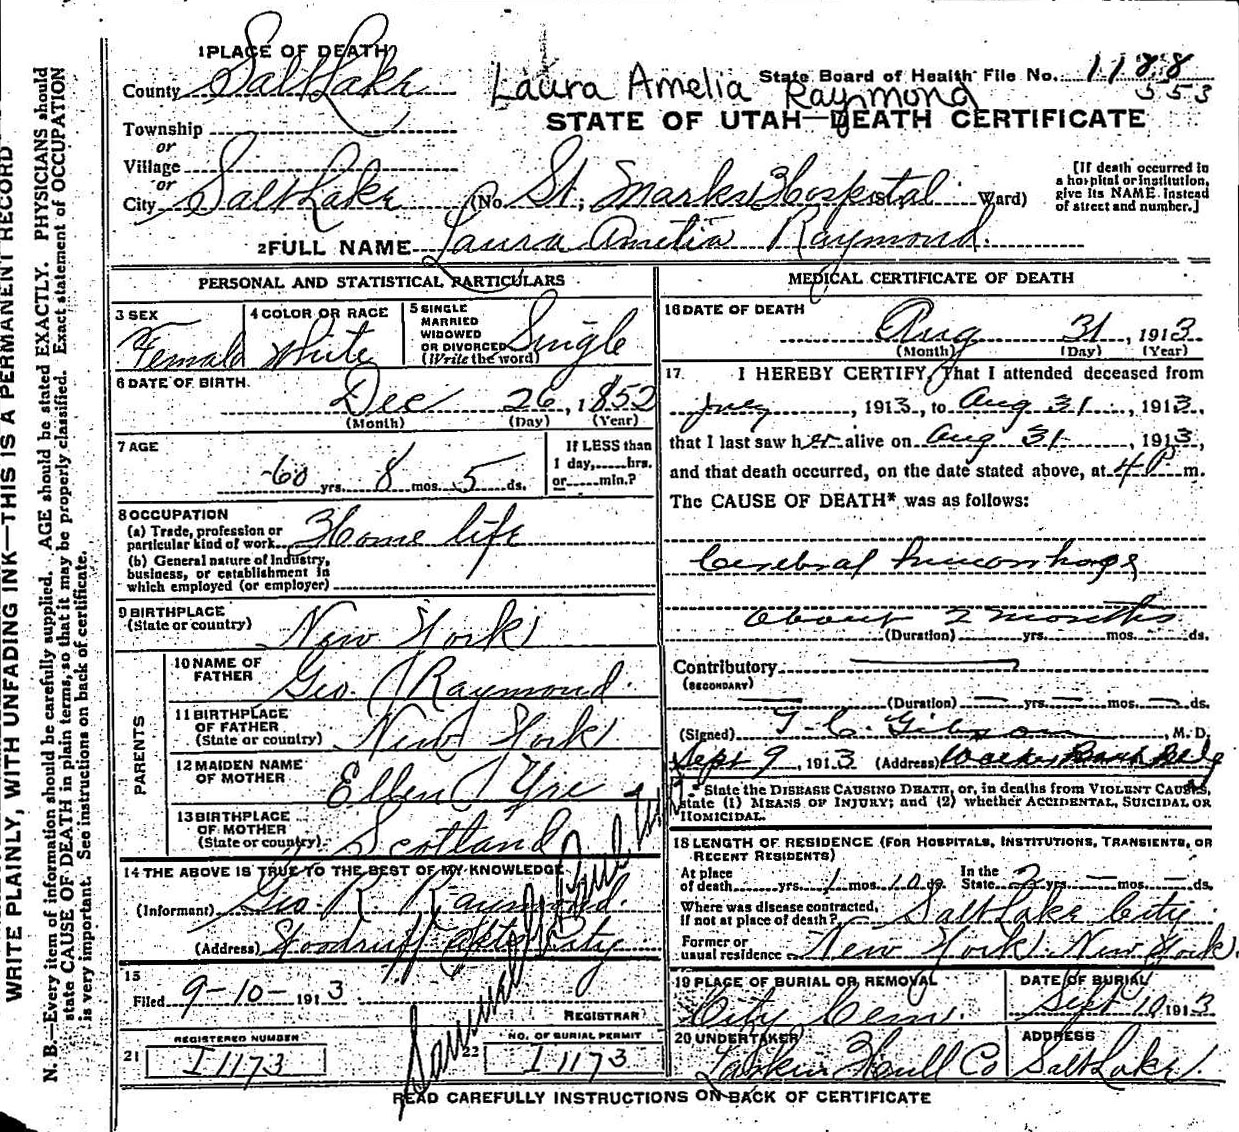 WRITE PLAINLY, WITH UNFADING INK—THIS IS A PERMANENT RECORD
N. B.—Every item of information should be carefully supplied. AGE should be stated EXACTLY. PHYSICIANS should
state CAUSE OF DEATH in plain terms, so that it may be properly classified. Exact statement of OCCUPATION
is very important. See instructions on back of certificate.
1 PLACE OF DEATH
County Salt Lake
Township
or
Village
or
City Salt Lake
Laura Amelia Raymond
State Board of Health File No. 1188
353
STATE OF UTAH—DEATH CERTIFICATE
(No. St. Marks Hospital St.; Ward)
[If death occurred in
a hospital or institution,
give its NAME instead
of street and number.]
2 FULL NAME Laura Amelia Raymond.
PERSONAL AND STATISTICAL PARTICULARS
3 SEX
Female
4 COLOR OR RACE
White
5 SINGLE
MARRIED
WIDOWED
OR DIVORCED
(Write the word)
Single
6 DATE OF BIRTH
Dec 26, 1852
(Month) (Day) (Year)
7 AGE
60 yrs. 8 mos. 5 ds.
If LESS than
1 day, hrs.
or min.?
8 OCCUPATION
(a) Trade, profession or
particular kind of work Home life
(b) General nature of Industry,
business, or establishment in
which employed (or employer)
9 BIRTHPLACE
(State or country) New York
PARENTS
10 NAME OF
FATHER Geo. Raymond.
11 BIRTHPLACE
OF FATHER
(State or country) New York
12 MAIDEN NAME
OF MOTHER Ellen
13 BIRTHPLACE
OF MOTHER
(State or country) Scotland
14 THE ABOVE IS TRUE TO THE BEST OF MY KNOWLEDGE
(Informant) Geo. R. Raymond.
(Address) Woodruff City
15
Filed 9-10-1913
REGISTRAR
REGISTERED NUMBER
21 I1173
NO. OF BURIAL PERMIT
22 I1173
MEDICAL CERTIFICATE OF DEATH
16 DATE OF DEATH
Aug 31, 1913
(Month) (Day) (Year)
17. I HEREBY CERTIFY, That I attended deceased from
July, 1913, to Aug 31, 1913,
that I last saw her alive on Aug 31, 1913,
and that death occurred, on the date stated above, at 4 P m.
The CAUSE OF DEATH* was as follows:
Cerebral hemorrhage
about 2 months
(Duration) yrs. mos. ds.
Contributory
(SECONDARY)
(Duration) yrs. mos. ds.
(Signed) T. C. Gibson, M. D.
Sept 9, 1913 (Address) Walker Bank Bldg
* State the DISEASE CAUSING DEATH, or, in deaths from VIOLENT CAUSES,
state (1) MEANS OF INJURY; and (2) whether ACCIDENTAL, SUICIDAL OR
HOMICIDAL.
18 LENGTH OF RESIDENCE (FOR HOSPITALS, INSTITUTIONS, TRANSIENTS, OR
RECENT RESIDENTS)
At place
of death yrs. 1 mos. 10 ds. In the
State 2 yrs. mos. ds.
Where was disease contracted,
If not at place of death? Salt Lake City
Former or
usual residence New York. New York.
19 PLACE OF BURIAL OR REMOVAL
City Cem.
DATE OF BURIAL
Sept 10 1913
20 UNDERTAKER
ADDRESS
Salt Lake.
READ CAREFULLY INSTRUCTIONS ON BACK OF CERTIFICATE